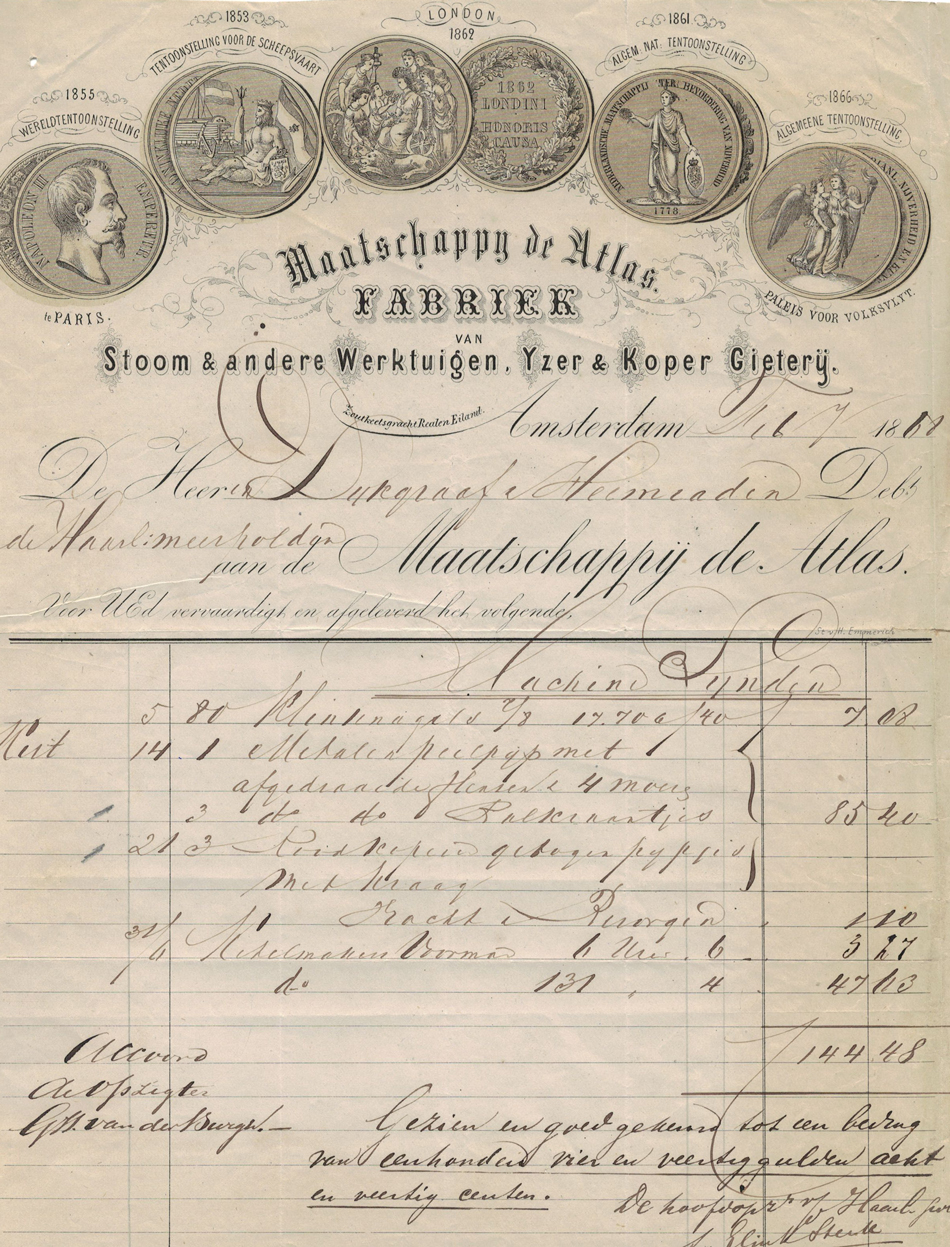 1853
LONDON
1862
1861
TENTOONSTELLING VOOR DE SCHEEPVAART
ALGEM. NAT. TENTOONSTELLING
1855
WERELDTENTOONSTELLING
1866
ALGEMEENE TENTOONSTELLING
1862
LONDINI
HONORIS
CAUSA
NAPOLEON III EMPEREUR
1778
te PARIS.
PALEIS VOOR VOLKSVLYT.
Maatschappy de Atlas.
FABRIEK
VAN
Stoom & andere Werktuigen, Yzer & Koper Gieterij.
Zoutkeetsgracht Realen Eiland.
Amsterdam Feb 7 1868
De Heeren Dykgraaf & Heemraden Debt
de Haarlemmerpolder
aan de Maatschappij de Atlas.
Voor UEd vervaardigt en afgeleverd het volgende.
St. v. H. Emmerik
Machine Lynden
5 80 Klinknagels 7/8 17.70 a /40 7 08
14 1 Metalen peilpyp met
afgedraaide flensen & 4 moer
3 do do
21 3 Roodkoperen gebogen pypjes
met kraag
85 40
Vracht & Bezorgen 1 10
31/ Ketelmakers Voorman 6 Uren 6 3 27
do 131 " 4 47 63
144 48
Accoord
de Opzigter
G.H. van der Burgh.
Gezien en goedgekeurd tot een bedrag
van eenhonderd vier en veertig gulden acht
en veertig centen.
De hoofdopzr. v/ Haarl
J. Elink Sterk